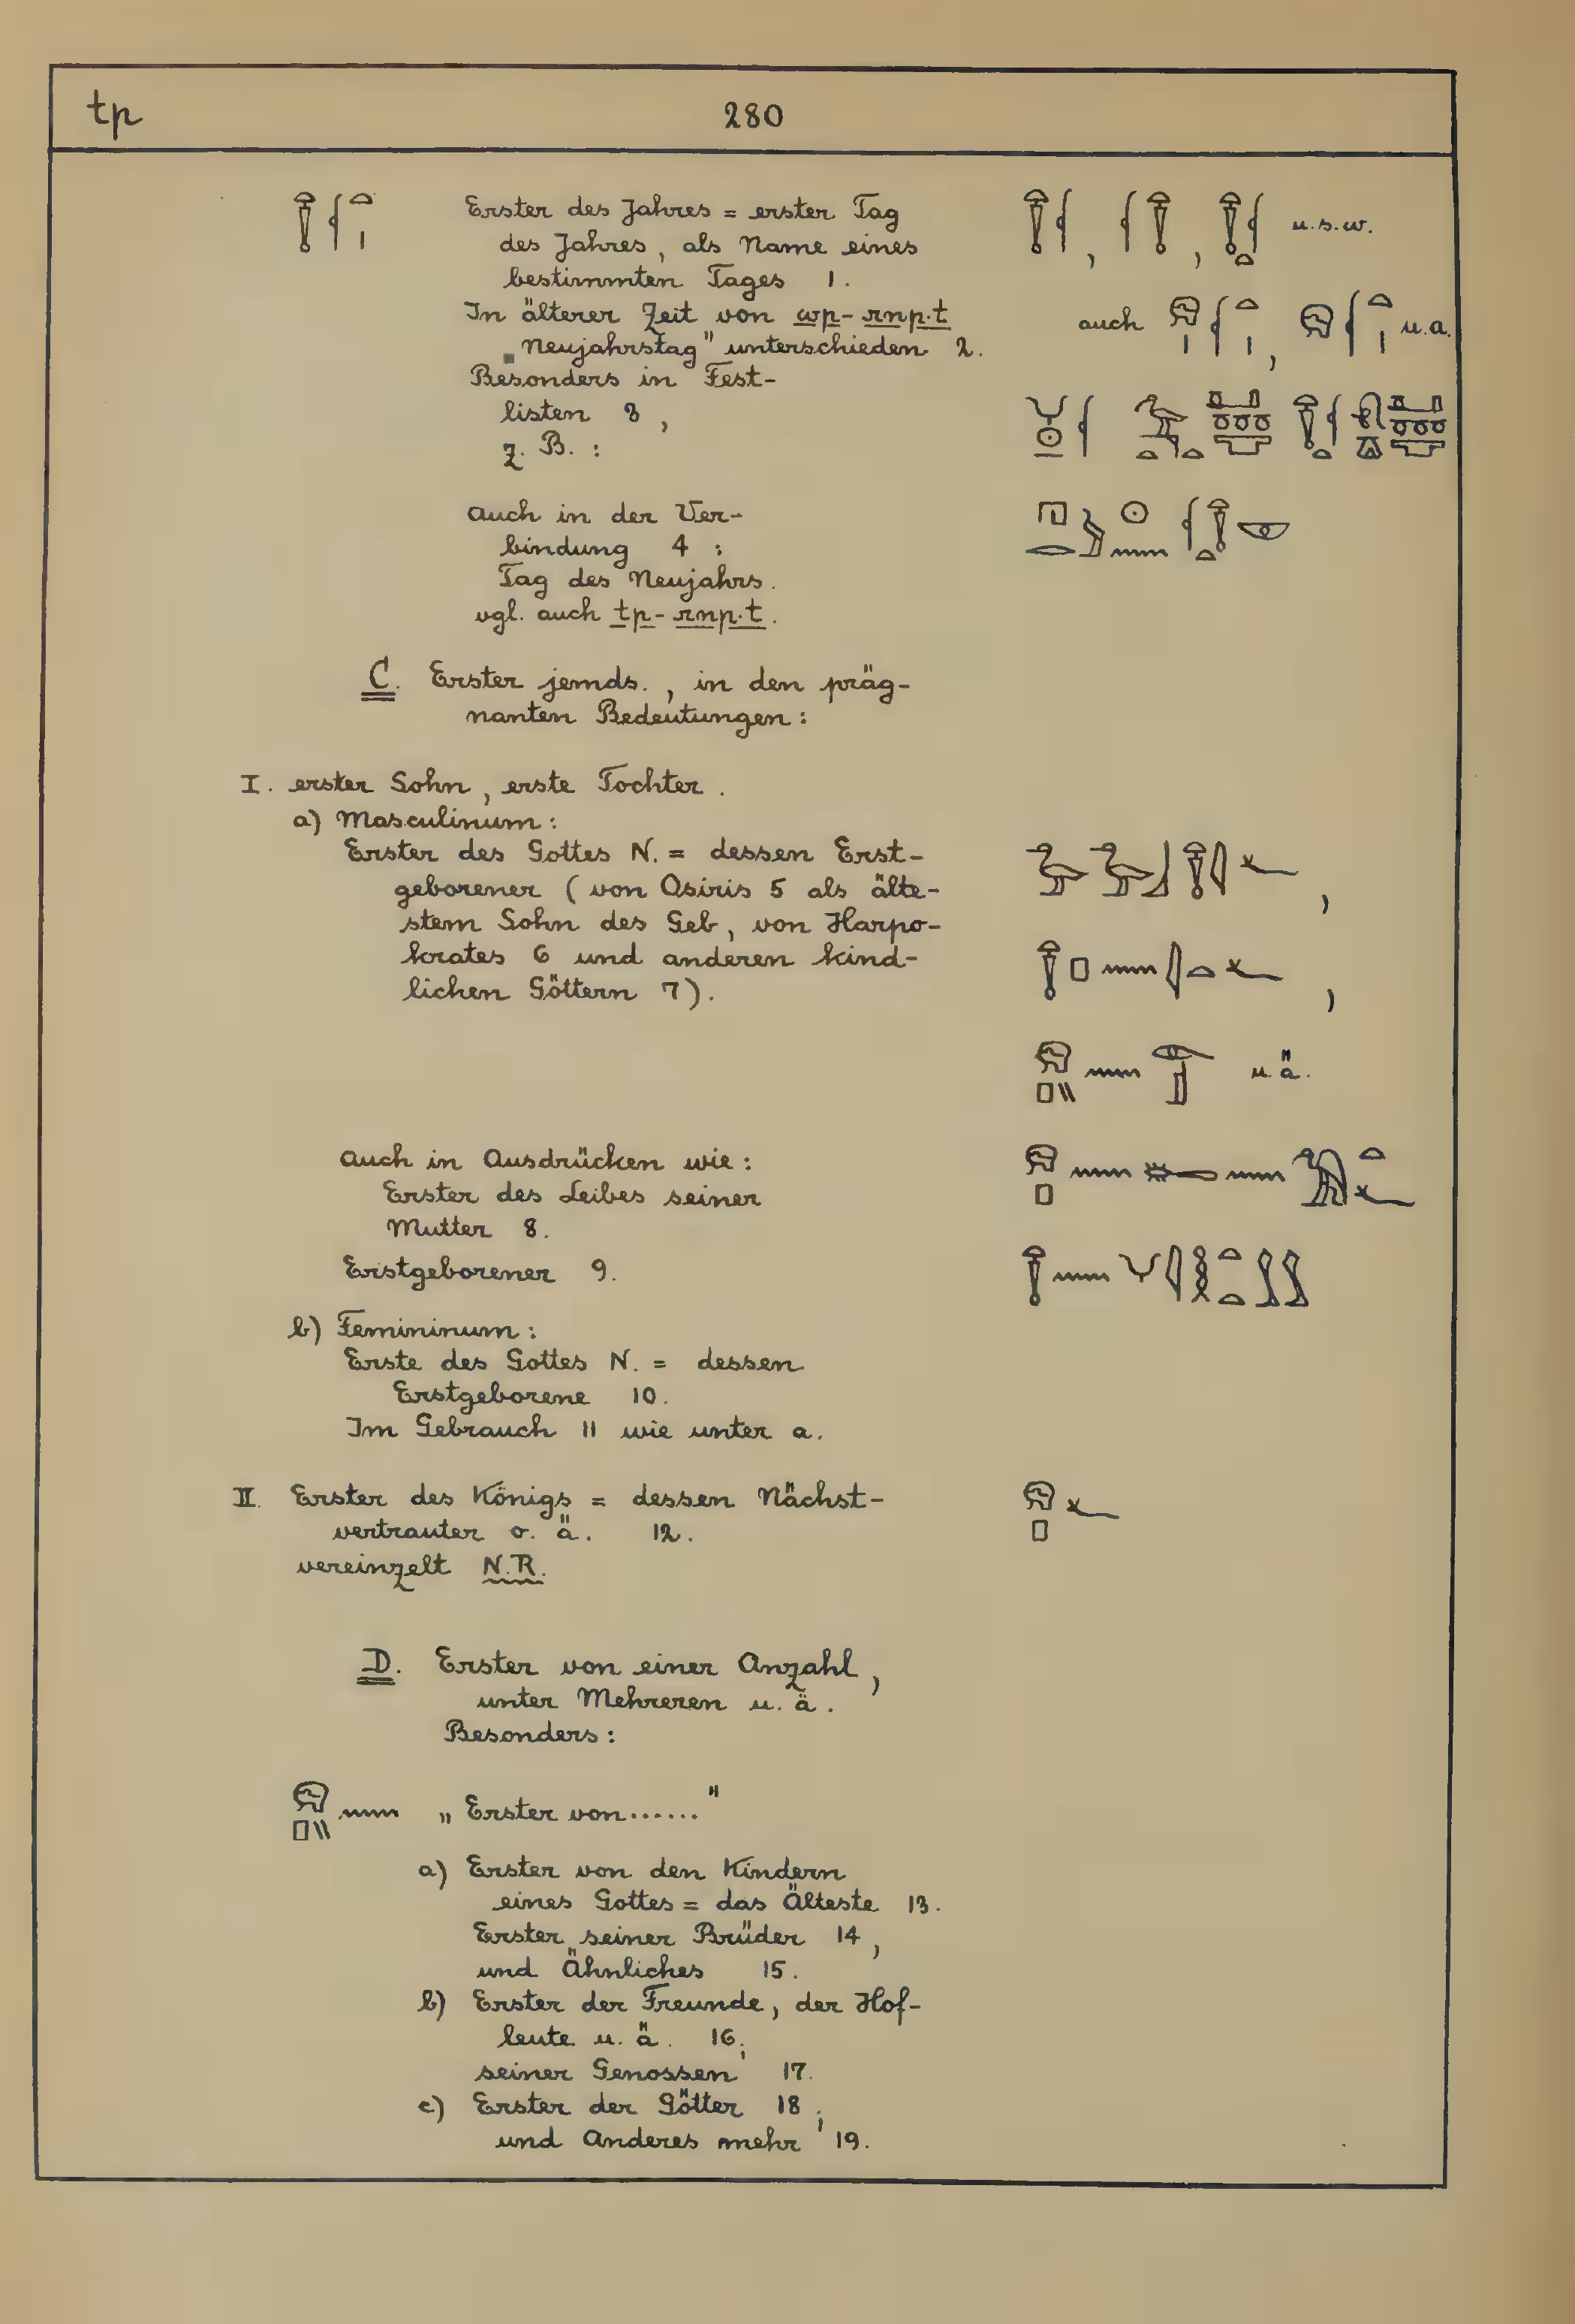 tp
280
Erster des Jahres = erster Tag
des Jahres, als Name eines
u.s.w.
bestimmten Tages 1.
In älterer Zeit von wp-rnp.t
auch
u.a.
„Neujahrstag" unterschieden 2.
Besonders in Fest-
listen 3,
z. B. :
auch in der Ver-
bindung 4 :
Tag des Neujahrs.
vgl. auch tp-rnp.t.
C. Erster jemds., in den präg-
nanten Bedeutungen:
I. erster Sohn, erste Tochter.
a) Masculinum:
Erster des Gottes N. = dessen Erst-
geborener (von Osiris 5 als älte-
stem Sohn des Geb, von Harpo-
krates 6 und anderen kind-
lichen Göttern 7).
u. ä.
auch in Ausdrücken wie:
Erster des Leibes seiner
Mutter 8.
Erstgeborener 9.
b) Femininum:
Erste des Gottes N. = dessen
Erstgeborene 10.
Im Gebrauch 11 wie unter a.
II. Erster des Königs = dessen Nächst-
vertrauter o. ä. 12.
vereinzelt N.R.
D. Erster von einer Anzahl,
unter Mehreren u. ä.
Besonders:
„Erster von......"
a) Erster von den Kindern
eines Gottes = das Älteste 13.
Erster seiner Brüder 14,
und Ähnliches 15.
b) Erster der Freunde, der Hof-
leute u. ä. 16;
seiner Genossen 17.
c) Erster der Götter 18;
und Anderes mehr 19.